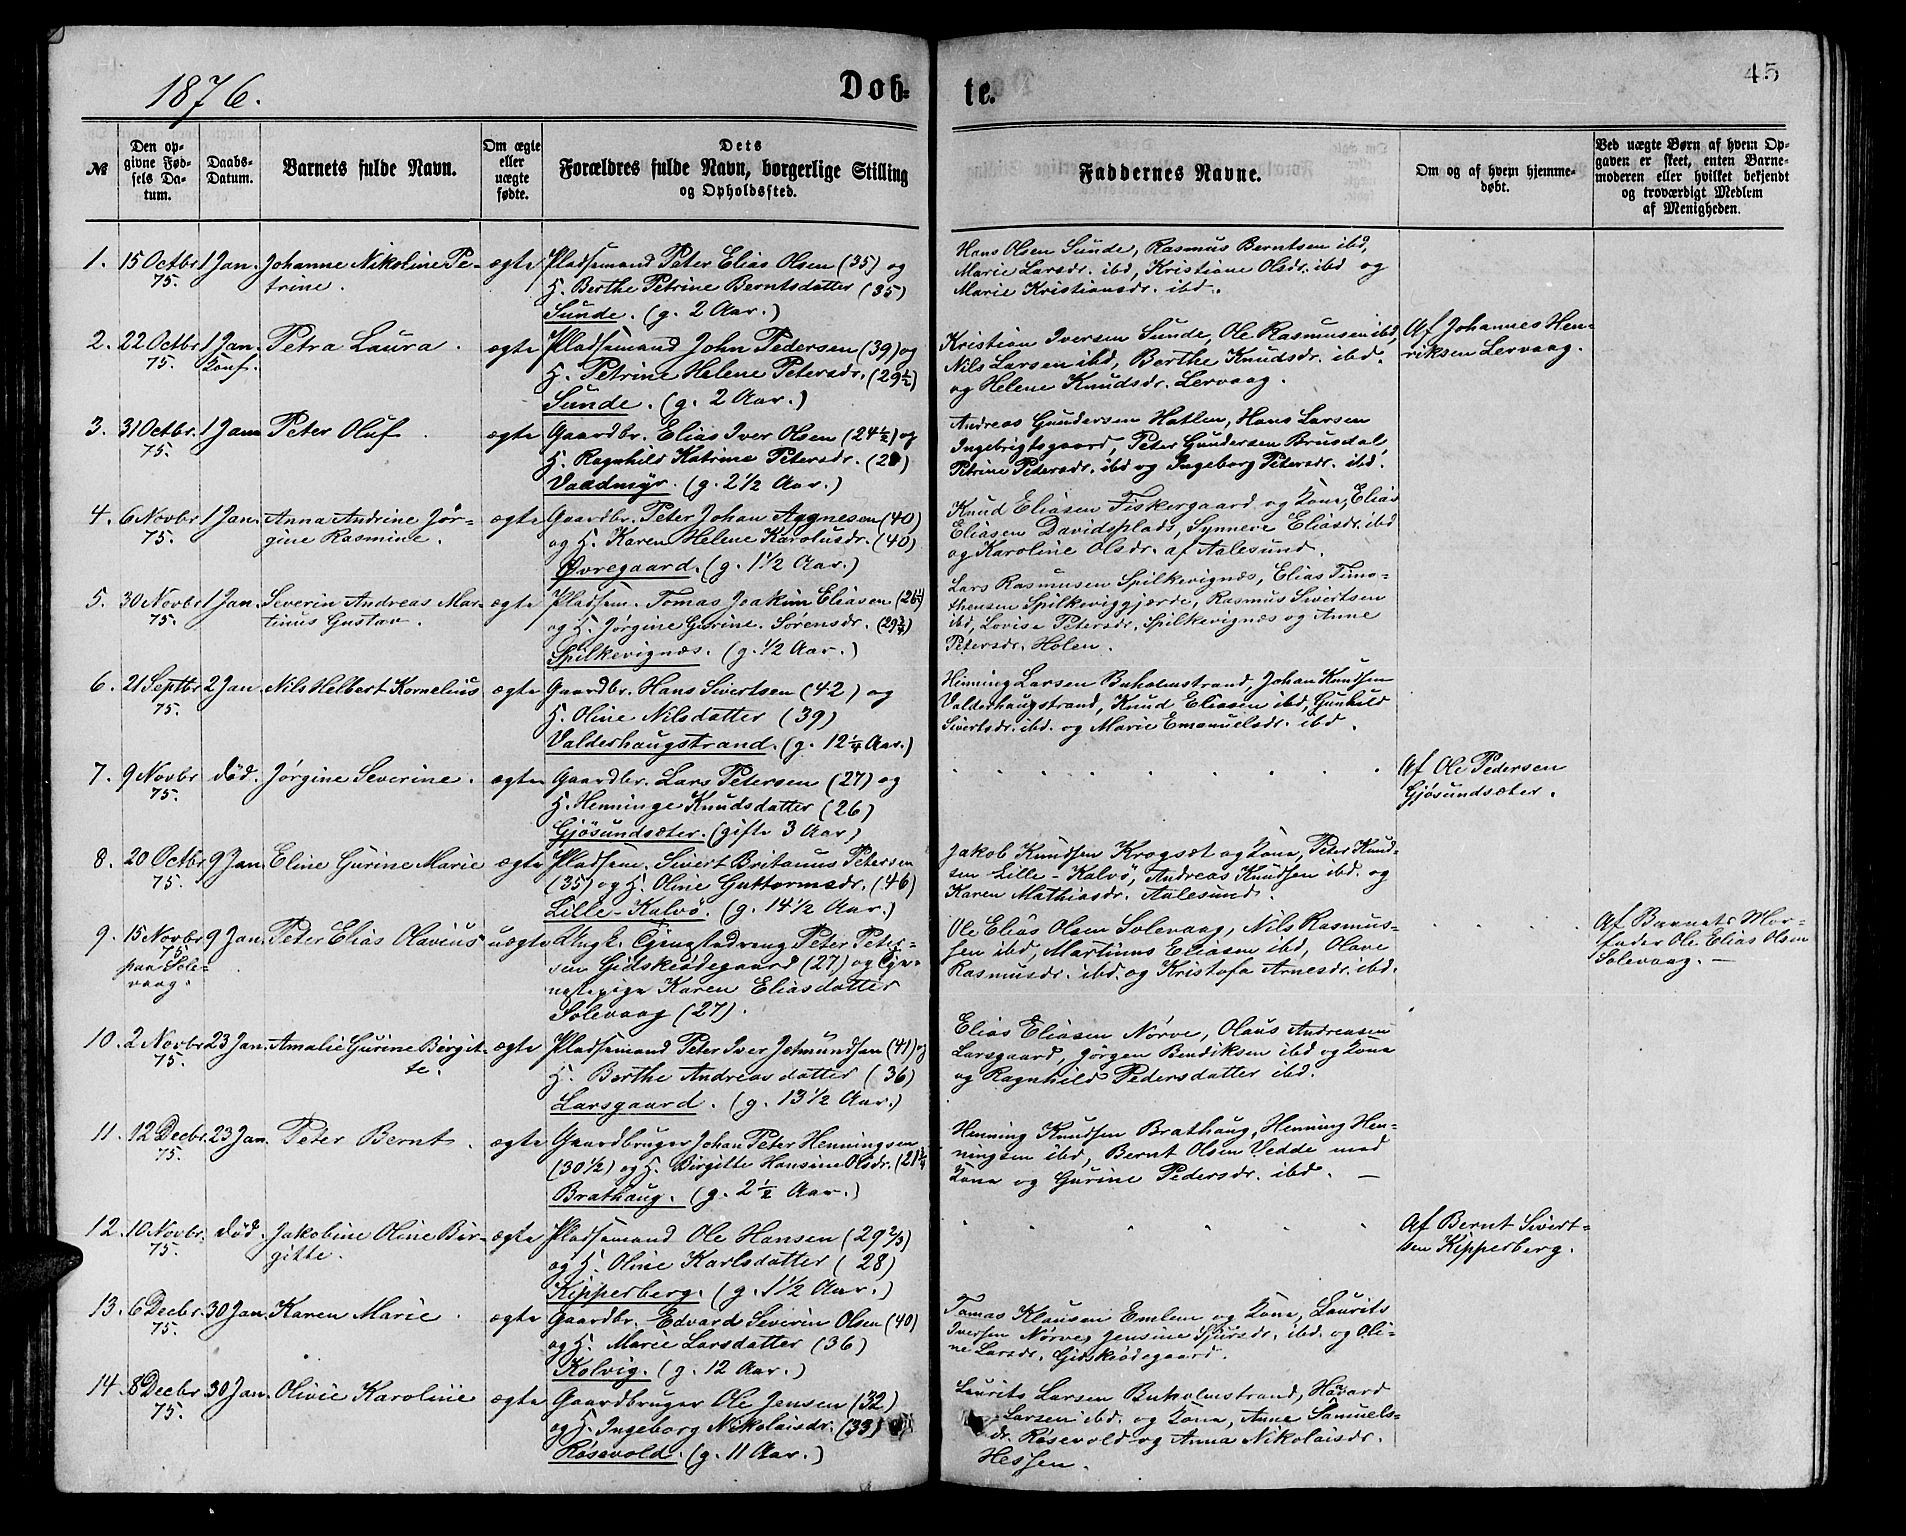 1876.
Døb-
te.
45
№
Den op-
givne Fød-
sels Da-
tum.
Daabs-
Datum.
Barnets fulde Navn.
Om ægte
eller
uægte
fødte.
Dets
Forældres fulde Navn, borgerlige Stilling
og Opholdssted.
Faddernes Navne.
Om og af hvem hjemme-
døbt.
Ved uægte Børn af hvem Op-
gaven er skeet, enten Barne-
moderen eller hvilket bekjendt
og troværdigt Medlem
af Menigheden.
1. 15 Octbr 1 Jan. Johanne Nikoline Pe- ægte Pladsemand Peter Elias Olsen (35) og
75. trine. H. Berthe Petrine Berntsdatter (35)
Sunde. (g. 2 Aar.)
Hans Olsen Sunde, Rasmus Berntsen ibd,
Marie Larsdr. ibd, Kristiane Olsdr. ibd og
Marie Kristiansdr. ibd.
2. 22 Octbr 1 Jan. Petra Laura. ægte Pladsemand John Pedersen (39) og
75. Konf. H. Petrine Helene Petersdr. (29½)
Sunde. (g. 2 Aar.)
Kristian Iversen Sunde, Ole Rasmusen ibd,
Nils Larsen ibd, Berthe Knudsdr. ibd.
og Helene Knudsdr. Lervaag.
Af Johannes Hen-
riksen Lervaag.
3. 31 Octbr. 1 Jan. Peter Oluf. ægte Gaardbr. Elias Iver Olsen (24½) og
75. H. Ragnhild Katrine Petersdr.
Vaadmyr. (g. 2 1/2 Aar.)
Andreas Gundersen Hatlen, Hans Larsen
Ingebrigtsgaard, Peter Gundersen Brusdal,
Petrine Petersdr. ibd og Ingeborg Petersdr. ibd.
4. 6 Novbr 1 Jan. Anna Andrine Jør- ægte Gaardbr. Peter Johan Aggnesen (40)
75. gine Rasmine. og H. Karen Helene Karolusdr. (40)
Øvregaard. (g. 1 1/2 Aar.)
Knud Eliasen Fiskergaard og Kone, Elias
Eliasen Davidsplads, Synneve Eliasdr. ibd
og Karoline Olsdr. af Aalesund.
5. 30 Novbr 1 Jan. Severin Andreas Mar- ægte Pladsem. Tomas Joakim Eliasen
75. tinus Gustav. og H. Jørgine Gurine Sørensdr. (29¾)
Spilkevignæs. (g. 1/2 Aar.)
Lars Rasmusen Spilkevignæs, Elias Timo-
thensen Spilkeviggjærde, Rasmus Sivertsen
ibd, Lovise Petersdr. Spilkevignæs og Anne
Petersdr. Holen.
6. 21 Septbr 2 Jan. Nils Helbert Kornelius ægte Gaardbr. Hans Sivertsen (42) og
75. H. Oline Nilsdatter (39)
Valderhaugstrand. (g. 12¼ Aar.)
Henning Larsen Buholmstrand, Johan Knudsen
Valderhaugstrand, Knud Eliasen ibd, Gunhild
Sivertsdr. ibd. og Marie Emanuelsdr. ibd.
7. 9 Novbr død. Jørgine Severine. ægte Gaardbr. Lars Petersen (27) og
75. H. Henninge Knudsdatter (26)
Gjøsundsæter. (gifte 3 Aar)
Af Ole Pedersen
Gjøsundsæter.
8. 20 Octbr 9 Jan. Eline Gurine Marie ægte Pladsem. Sivert Britanus Petersen
75. (35) og H. Oline Guttormsdr. (46)
Lille-Kalvø. (g. 14 1/2 Aar.)
Jakob Knudsen Krogsæt og Kone, Peter Knud-
sen Lille-Kalvø, Andreas Knudsen ibd. og
Karen Mathiasdr. Aalesund.
9. 15 Novbr 9 Jan. Peter Elias Olavius uægte Ungk. Tjenestedreng Peter Peter-
75. sen Gidskeødegaard (27) og Tje-
paa Sole- nestepige Karen Eliasdatter
vaag. Solevaag (27).
Ole Elias Olsen Solevaag, Nils Rasmus-
sen ibd, Martinus Eliasen ibd, Olave
Rasmusdr. ibd. og Kristofa Arnesdr. ibd.
Af Barnets Mor-
fader Ole Elias Olsen
Solevaag. —
10. 2 Novbr 23 Jan. Amalie Gurine Birgit- ægte Pladsemand Peter Iver Jetmundsen (41) og
75. te. H. Berthe Andreasdatter (36)
Larsgaard. (g. 13 1/2 Aar.)
Elias Eliasen Nørve, Olaus Andreasen
Larsgaard, Jørgen Bendiksen ibd og Kone
og Ragnhild Pedersdatter ibd.
11. 12 Decbr. 23 Jan. Peter Bernt. ægte Gaardbruger Johan Peter Henningsen
75. (30 1/2) og H. Birgitte Hansine Olsdr.
Brathaug. (g. 2½ Aar.)
Henning Knudsen Brathaug, Henning Hen-
ningsen ibd, Bernt Olsen Vedde med
Kone og Gurine Pedersdr. ibd. —
12. 10 Novbr. død. Jakobine Oline Bir- ægte Pladsemand Ole Hansen (29 2/3)
75. gitte. og H. Oline Karlsdatter (28)
Kipperberg. (g. 1 1/2 Aar.)
Af Bernt Sivert-
sen Kipperberg.
13. 6 Decbr. 30 Jan Karen Marie. ægte Gaardbr. Edvard Severin Olsen (40)
75. og H. Marie Larsdatter (36)
Kolvig. (g. 12 Aar.)
Tomas Klausen Emlem og Kone, Laurits
Iversen Nørve, Jensine Sjursdr. ibd. og Oli-
ne Larsdr. Gidskeødegaard.
14. 8 Decbr. 30 Jan. Olivie Karoline ægte Gaardbruger Ole Jensen (32)
75. og H. Ingeborg Nikolaisdr. (33)
Røsevold. (g. 11 Aar.)
Laurits Larsen Buholmstrand, Havard
Larsen ibd. og Kone, Anne Samuels-
dr. Røsevold og Anna Nikolaisdr.
Hessen.